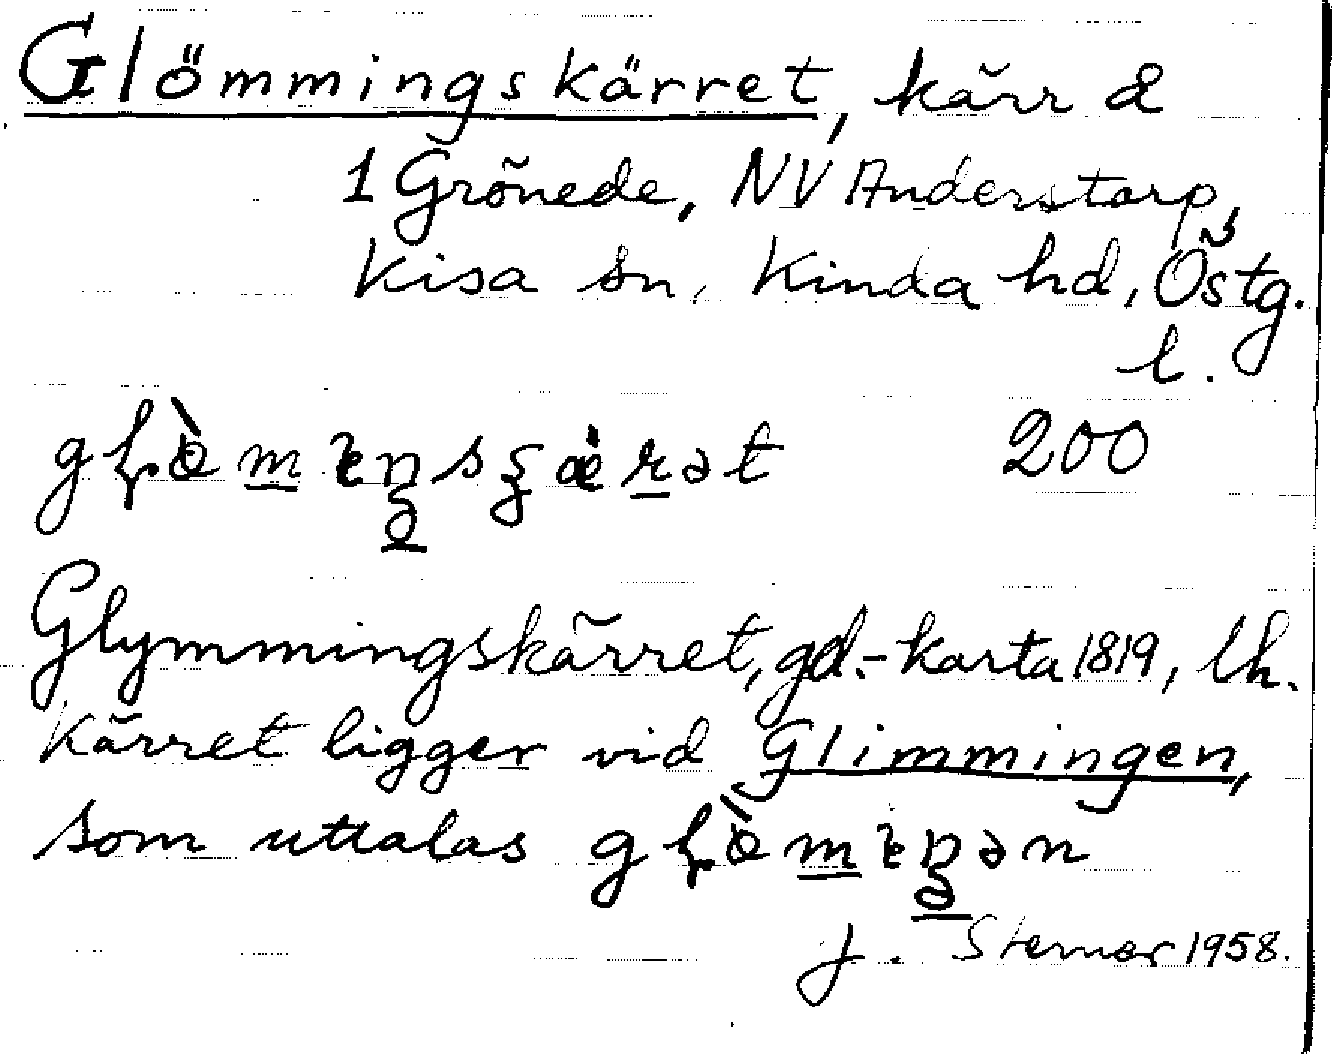 Glömmingskärret, kärr å
1 Grönede, NV Anderstorp,
Kisa sn, Kinda hd, Östg.
l.
200
Glymmingskärret, gd.-karta 1819, lh.
Kärret ligger vid Glimmingen,
som uttalas
J. Sterner 1958.